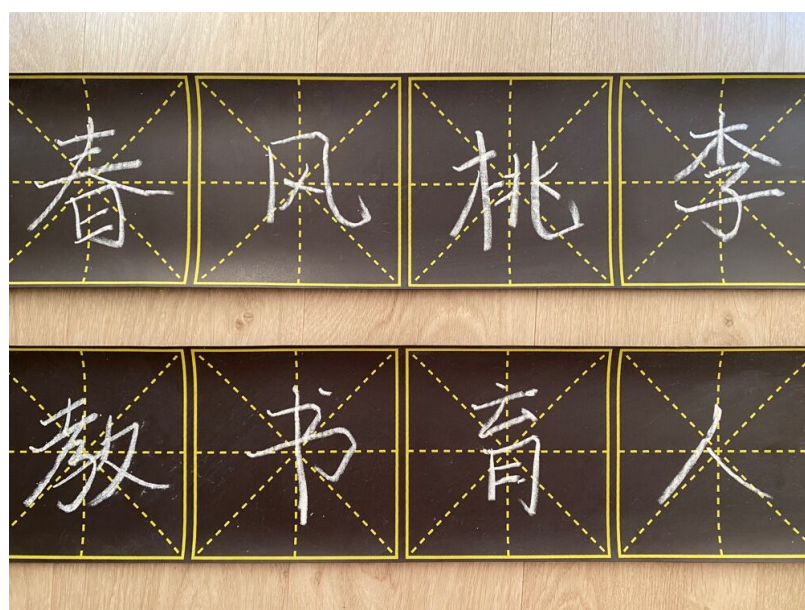 春风桃李
教书育人